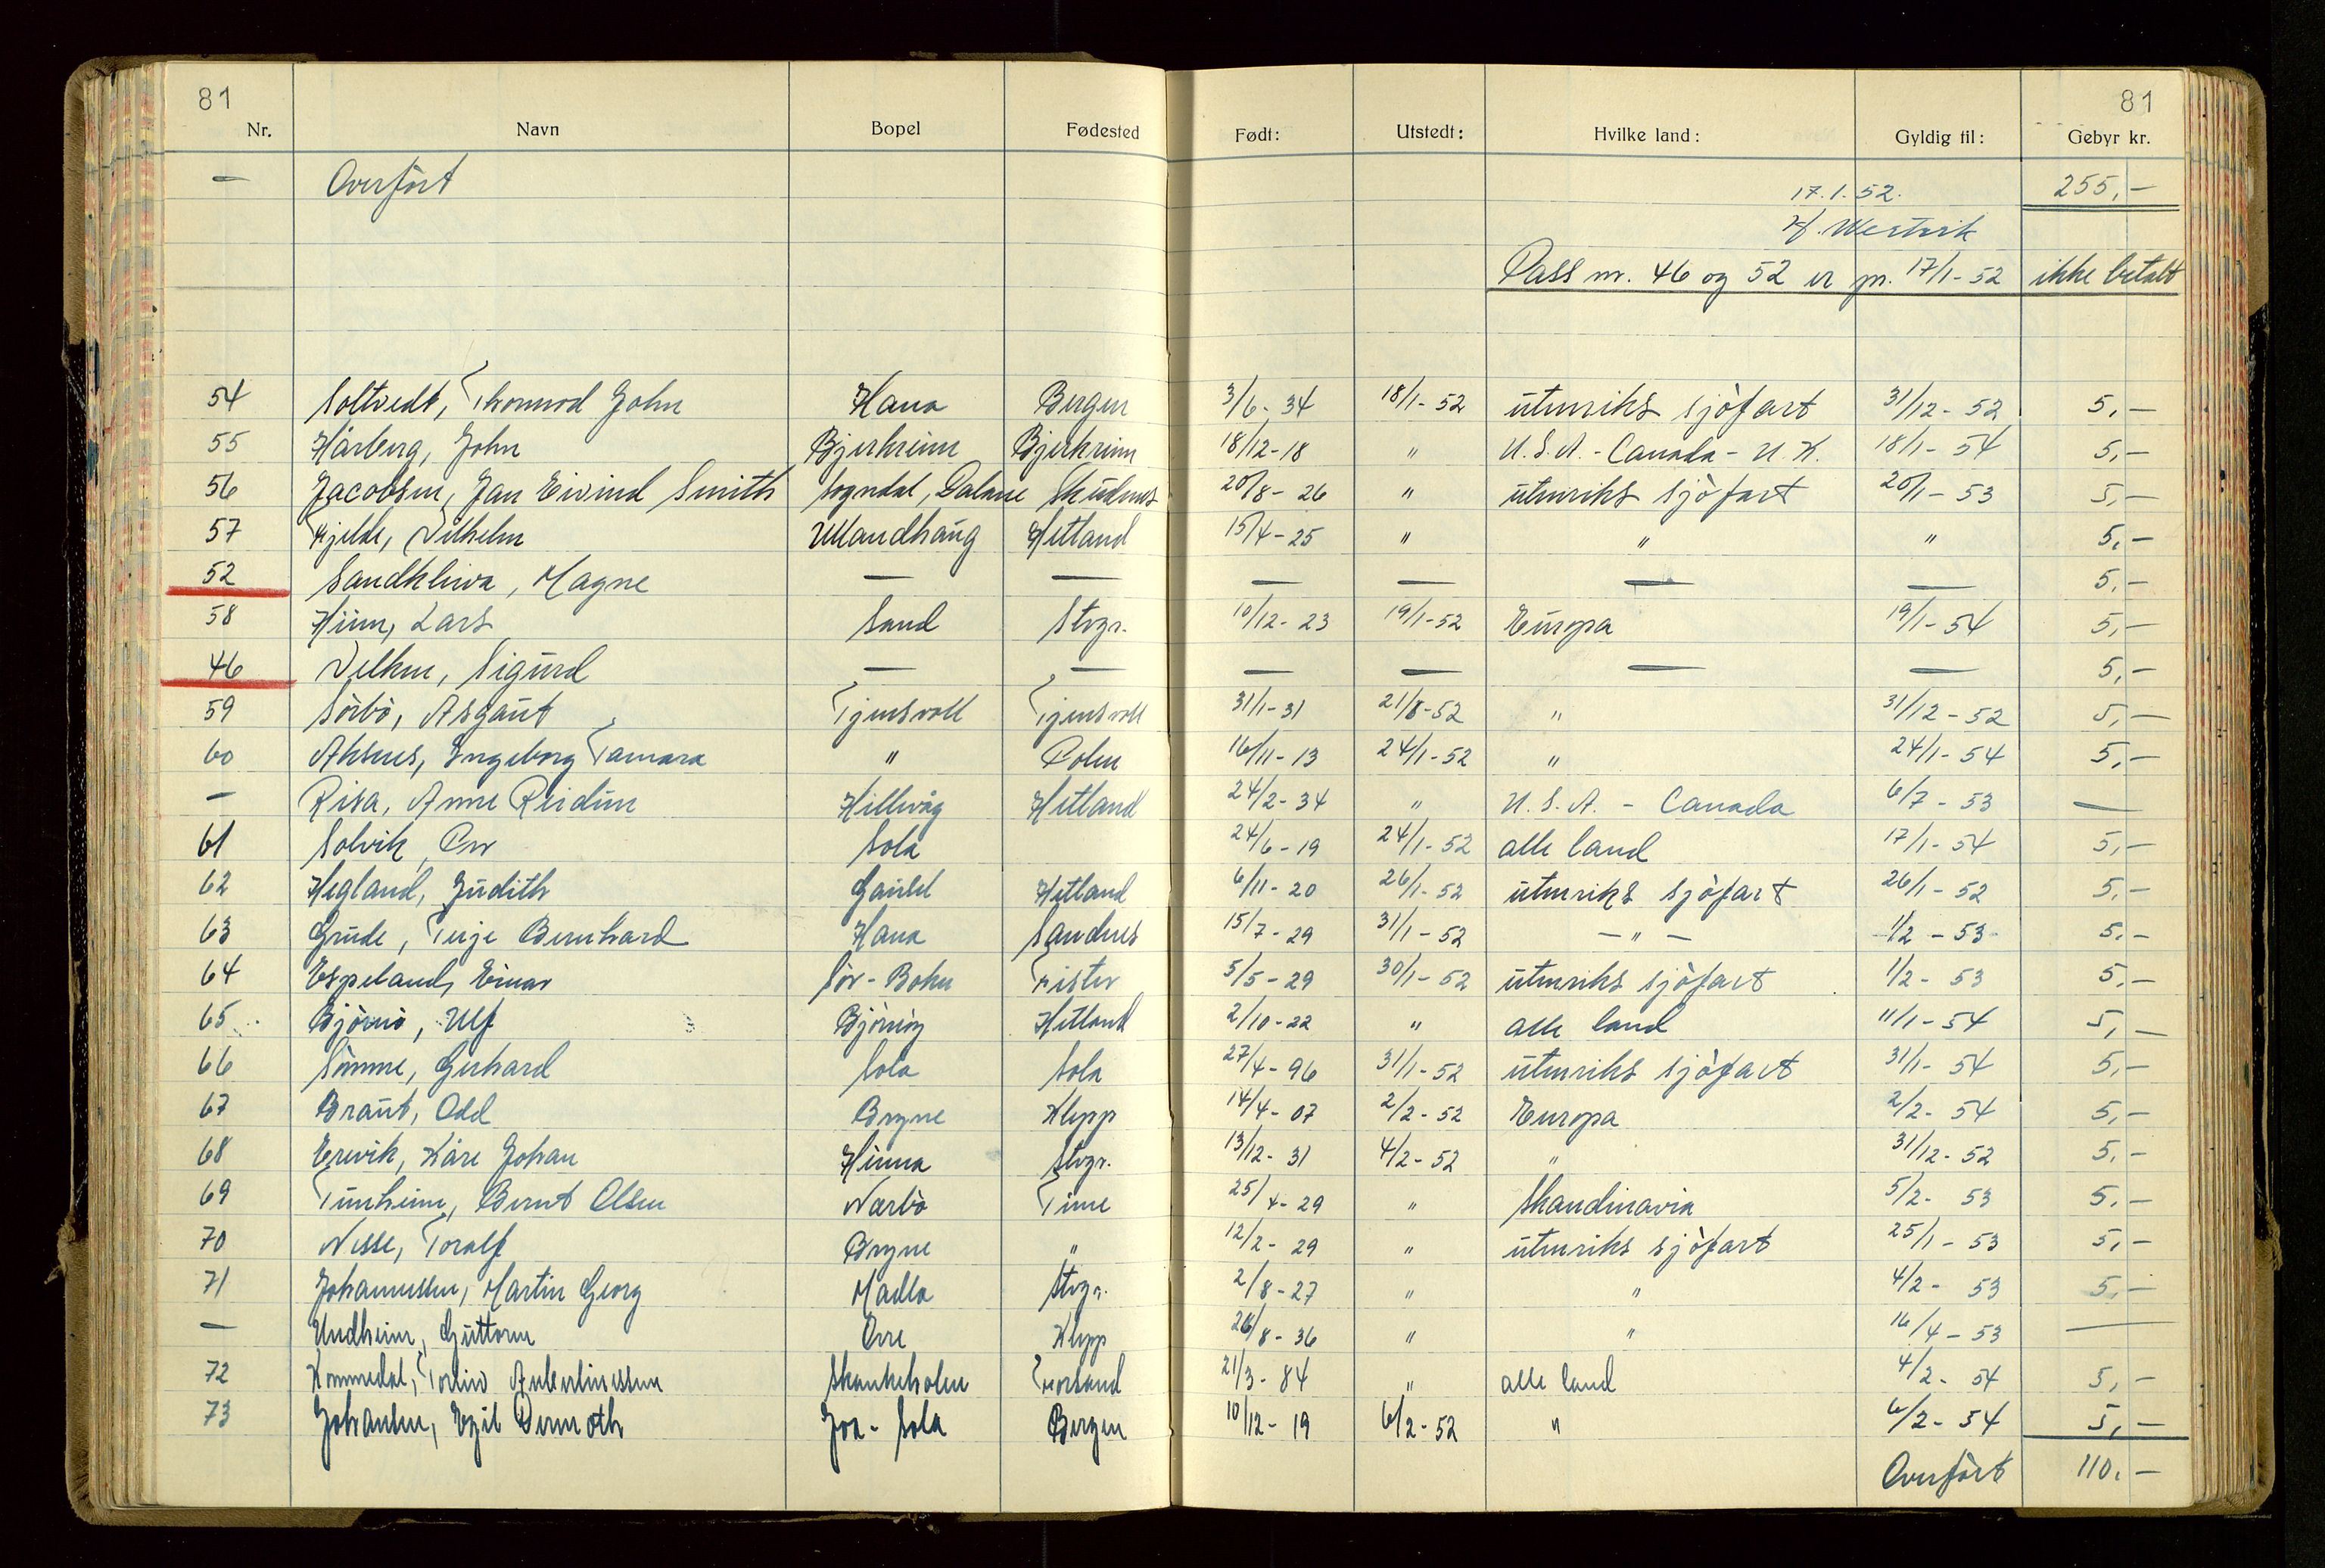 81 81
Nr. Navn Bopel Fødested Født: Utstedt: Hvilke land: Gyldig til: Gebyr kr.
— Overført 17.1.52. 255,-
Pass nr. 46 og 52 er pr. 17/1-52 ikke betalt
54 Soltvedt, Thormod John Hana Bergen 3/6-34 18/1-52 utenriks sjöfart 31/12-52 5,-
55 Hårberg, John Bjerkreim Bjerkreim 18/12-18 " U.S.A. - Canada - U.K. 18/1-54 5,-
56 Jacobsen, Jan Eivind Smith Sogndal, Dalane Skudenes 20/8-26 " utenriks sjöfart 20/1-53 5,-
57 Kjelde, Vilhelm Ullandhaug Hetland 15/4-25 " " " 5,-
52 Sandkleiva, Magne — — — — — — 5,-
58 Hiim, Lars Sand Stvgr. 10/12-23 19/1-52 Europa 19/1-54 5,-
46 Velken, Sigurd — — — — — — 5,-
59 Sörbö, Asgaut Tjensvoll Tjensvoll 31/1-31 21/8-52 " 31/12-52 5,-
60 Aksnes, Ingeborg Tamara " Polen 16/11-13 24/1-52 " 24/1-54 5,-
— Risa, Anne Reidun Hillevåg Hetland 24/2-34 " U.S.A. - Canada 6/7-53 —
61 Solvik, Per Sola 24/6-19 24/1-52 alle land 17/1-54 5,-
62 Hegland, Judith Gausel Hetland 6/11-20 26/1-52 utenriks sjöfart 26/1-52 5,-
63 Grude, Terje Bernhard Hana Sandnes 15/7-29 31/1-52 - " - 1/2-53 5,-
64 Espeland, Einar Sör-Bokn Tister 5/5-29 30/1-52 utenriks sjöfart 1/2-53 5,-
65 Björnö, Ulf Björnöy Hetland 2/10-22 " alle land 11/1-54 5,-
66 Sömme, Gerhard Sola Sola 27/4-96 31/1-52 utenriks sjöfart 31/1-54 5,-
67 Braut, Odd Bryne Klepp 14/4-07 2/2-52 Europa 2/2-54 5,-
68 Erevik, Kåre Johan Hinna Stvgr. 13/12-31 4/2-52 " 31/12-52 5,-
69 Tunheim, Bernt Olsen Nærbö Time 25/4-29 " Skandinavia 5/2-53 5,-
70 Nesse, Toralf Bryne " 12/2-29 " utenriks sjöfart 25/1-53 5,-
71 Johannessen, Martin Georg Madla Stvgr. 2/8-27 " " 4/2-53 5,-
— Undheim, Guttorm Orre Klepp 26/8-36 " " 16/4-53 —
72 Kommedal, Torleiv Skankeholm Forsand 21/3-84 " alle land 4/2-54 5,-
73 Johansen, Egil Dermoth Joa-Sola Bergen 10/12-19 6/2-52 " 6/2-54 5,-
Overført 110,-